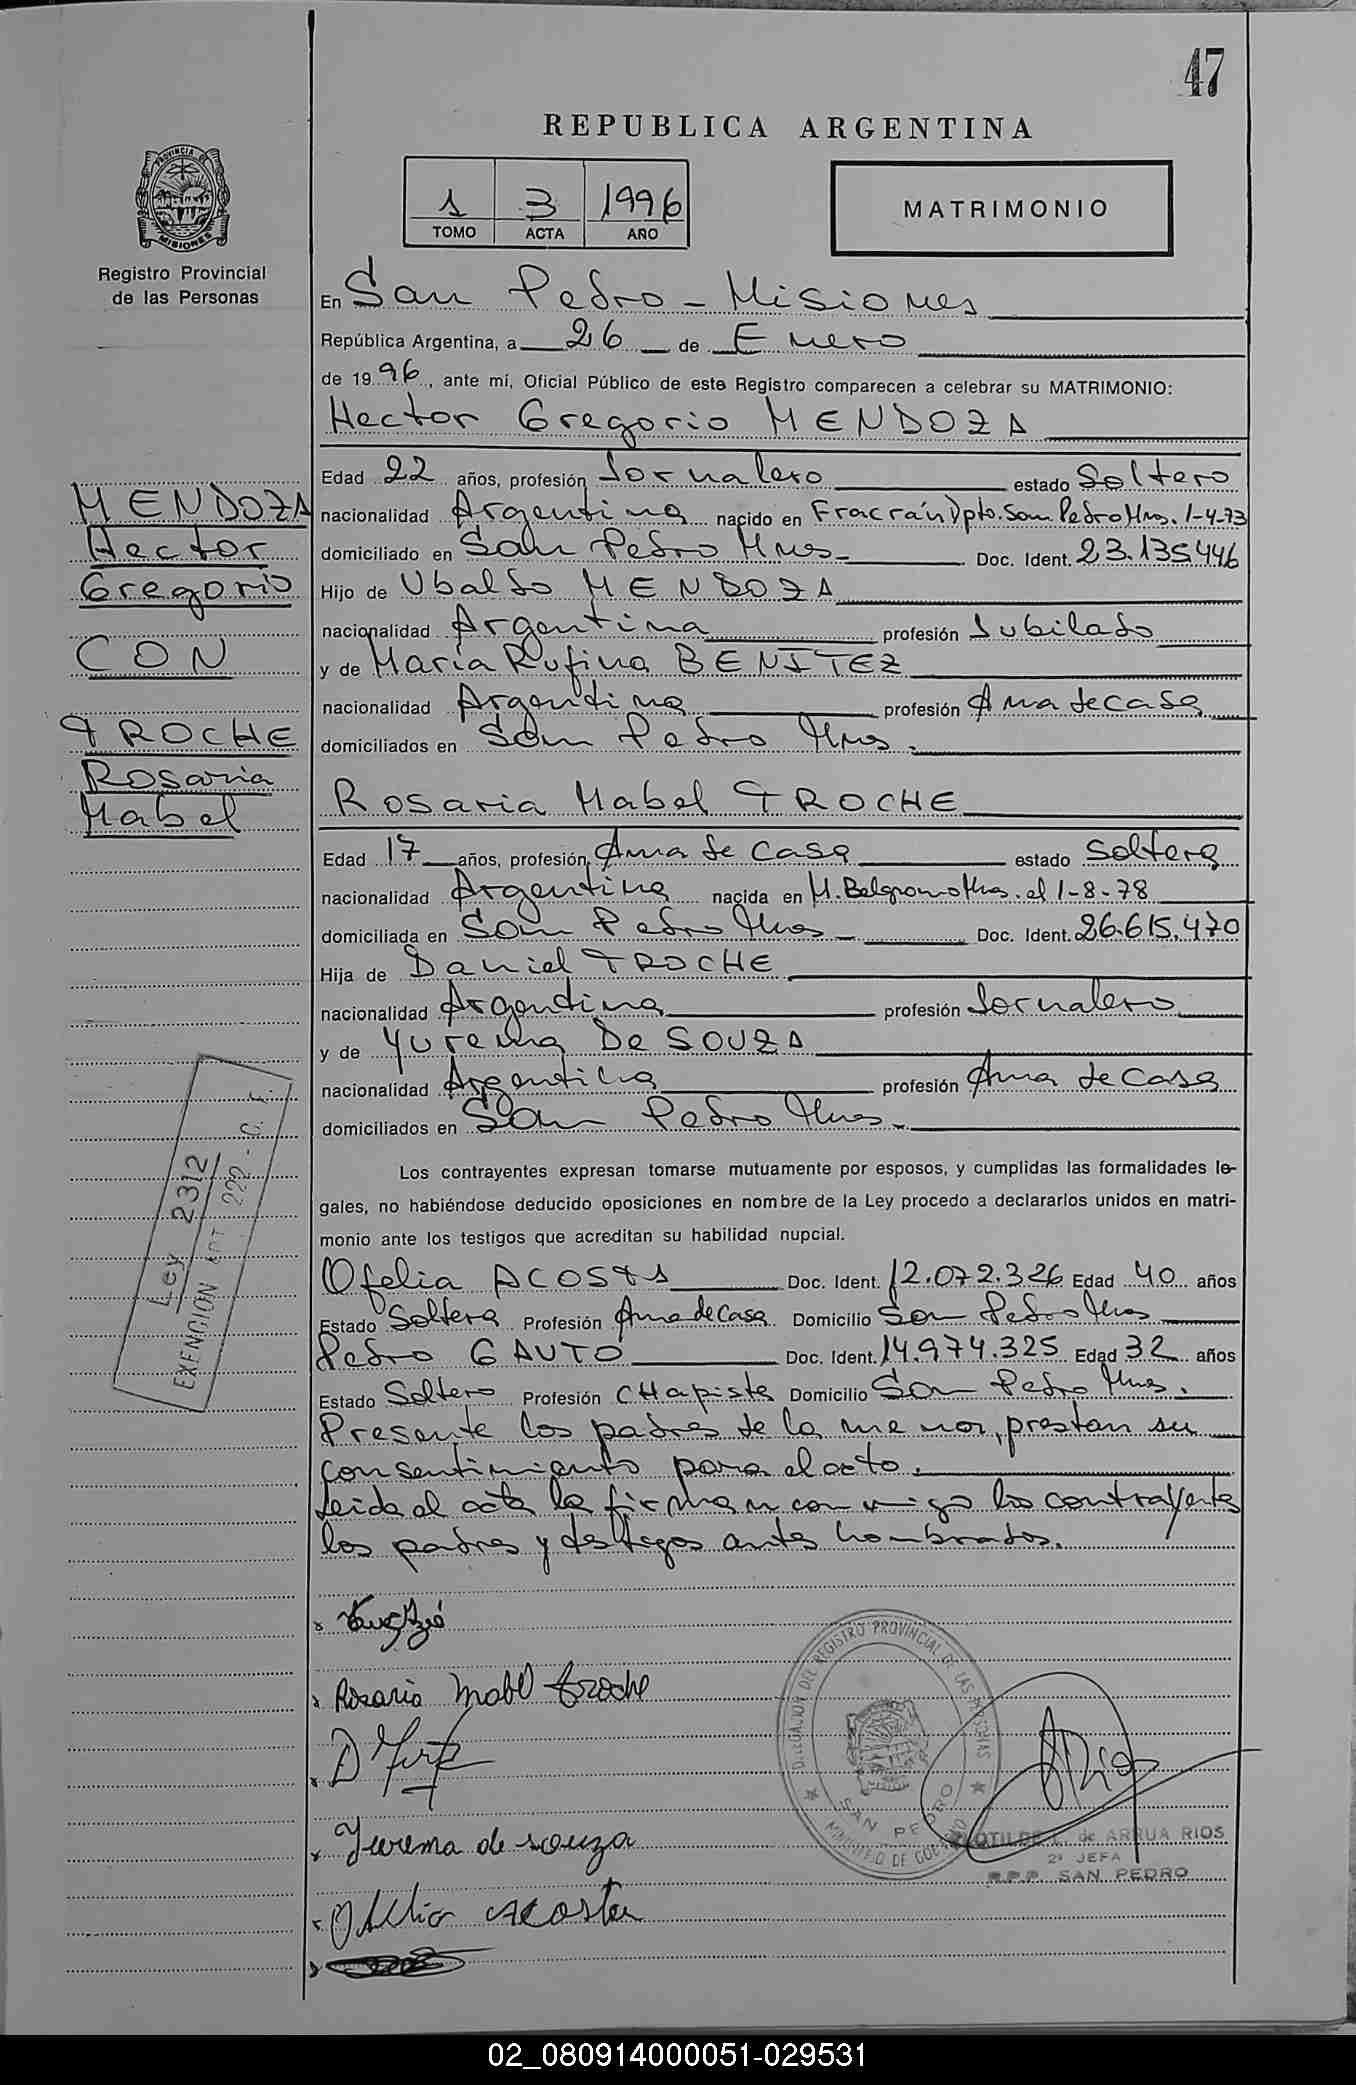 47
REPUBLICA ARGENTINA
PROVINCIA DE
MISIONES
Registro Provincial
de las Personas
1 3 1996
TOMO ACTA AÑO
MATRIMONIO
En San Pedro - Misiones
República Argentina, a 26 de Enero
de 1996, ante mí, Oficial Público de este Registro comparecen a celebrar su MATRIMONIO:
Hector Gregorio MENDOZA
Edad 22 años, profesión Jornalero estado Soltero
nacionalidad Argentina nacido en Fracrán Dpto. San Pedro Mnes. 1-4-73
domiciliado en San Pedro Mnes - Doc. Ident. 23.135.446
Hijo de Ubaldo MENDOZA
nacionalidad Argentina profesión Jubilado
y de María Rufina BENITEZ
nacionalidad Argentina profesión Ama de casa
domiciliados en San Pedro Mnes.
MENDOZA
Hector
Gregorio
CON
TROCHE
Rosaria
Mabel
Rosaria Mabel TROCHE
Edad 17 años, profesión Ama de Casa estado Soltera
nacionalidad Argentina nacida en M. Belgrano Mnes. el 1-8-78
domiciliada en San Pedro Mnes - Doc. Ident. 26.615.470
Hija de Daniel TROCHE
nacionalidad Argentina profesión Jornalero
y de Yurema De SOUZA
nacionalidad Argentina profesión Ama de Casa
domiciliados en San Pedro Mnes -
Ley 2312
EXENCION ART 222 - C. F.
Los contrayentes expresan tomarse mutuamente por esposos, y cumplidas las formalidades le-
gales, no habiéndose deducido oposiciones en nombre de la Ley procedo a declararlos unidos en matri-
monio ante los testigos que acreditan su habilidad nupcial.
Ofelia ACOSTA Doc. Ident. 12.072.326 Edad 40 años
Estado Soltera Profesión Ama de Casa Domicilio San Pedro Mnes
Pedro GAUTO Doc. Ident. 14.974.325 Edad 32 años
Estado Soltero Profesión CHapista Domicilio San Pedro Mnes.
Presente los padres de la menor, prestan su
consentimiento para el acto.
Leida el acta la firman conmigo los contrayentes
los padres y testigos antes nombrados.
Rosario Mabel troche
Yurema de souza
Ofelia Acosta
DEL REGISTRO PROVINCIAL DE LAS PERSONAS
SAN PEDRO
MINISTERIO DE GOBIERNO
CLOTILDE L. de ARRUA RIOS
2ª JEFA
R.P.P. SAN PEDRO
02_080914000051-029531